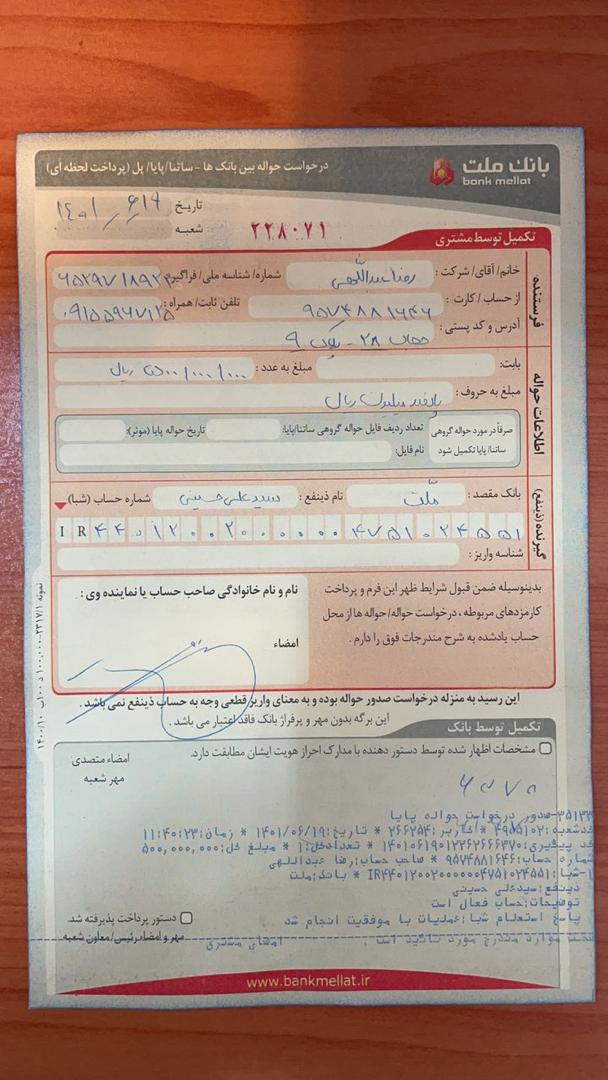 بانک ملت
bank mellat
درخواست حواله بین بانک ها - ساتنا/پایا/ پل (پرداخت لحظه ای)
تاریخ ۱۴۰۱/۶/۱۹
شعبه
۲۲۸۰۷۱
تکمیل توسط مشتری
فرستنده
خانم/آقای/شرکت: رضا عبداللهی شماره/شناسه ملی/فراگیر:
از حساب/کارت: ۹۵۷۴۸۸۱۶۴۶ تلفن ثابت/همراه: ۰۹۱۵۵۹۶۷۱۲۵
آدرس و کد پستی: ۲۸ - پلاک ۹
اطلاعات حواله
بابت: مبلغ به عدد: ۵۰۰/۰۰۰/۰۰۰ ریال
مبلغ به حروف: پانصد میلیون ریال
صرفاً در مورد حواله گروهی ساتنا/پایا تکمیل شود
تعداد ردیف فایل حواله گروهی ساتنا/پایا: تاریخ حواله پایا (موثر):
نام فایل:
گیرنده (ذینفع)
بانک مقصد: ملت نام ذینفع: سید علی حسینی شماره حساب (شبا)
IR ۴۴۰۱۲۰۰۲۰۰۰۰۰۰۴۷۵۱۰۲۴۵۵۱
شناسه واریز:
بدینوسیله ضمن قبول شرایط ظهر این فرم و پرداخت
کارمزدهای مربوطه، درخواست حواله/حواله ها از محل
حساب یادشده به شرح مندرجات فوق را دارم.
نام و نام خانوادگی صاحب حساب یا نماینده وی:
امضاء
این رسید به منزله درخواست صدور حواله بوده و به معنای واریز قطعی وجه به حساب ذینفع نمی باشد.
این برگه بدون مهر و پرفراژ بانک فاقد اعتبار می باشد.
تکمیل توسط بانک
مشخصات اظهار شده توسط دستور دهنده با مدارک احراز هویت ایشان مطابقت دارد.
امضاء متصدی
مهر شعبه
صدور درخواست حواله پایا
کدشعبه:۴۹۵۵۱۰۲ * کاربر:۲۶۶۲۵۴ * تاریخ:۱۴۰۱/۰۶/۱۹ * زمان:۱۱:۴۰:۲۳
کد پیگیری:۱۴۰۱۰۶۱۹۰۱۲۳۶۲۶۶۶۳۷۰ * تعدادکل:۱ * مبلغ کل:۵۰۰,۰۰۰,۰۰۰
شماره حساب:۹۵۷۴۸۸۱۶۴۶ * صاحب حساب:رضا عبداللهی
۱-شبا:IR۴۴۰۱۲۰۰۲۰۰۰۰۰۰۴۷۵۱۰۲۴۵۵۱ * بانک:ملت
ذینفع:سیدعلی حسینی
توضیحات:حساب فعال است
پاسخ استعلام شبا:عملیات با موفقیت انجام شد
موارد مندرج مورد تائید است . امضای مشتری
دستور پرداخت پذیرفته شد.
مهر و امضاء رئیس/معاون شعبه
www.bankmellat.ir